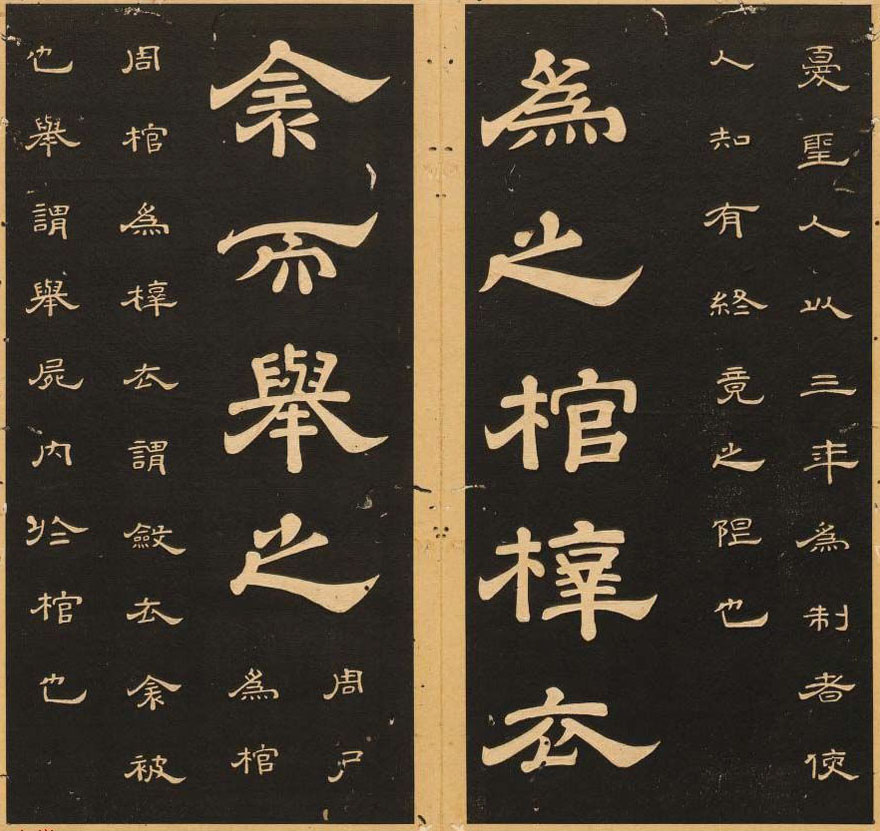 憂聖人以三年爲制者使
人知有終竟之限也
爲之棺椁衣
衾而舉之
周尸
爲棺
周棺爲椁衣謂斂衣衾被
也舉謂舉屍内於棺也